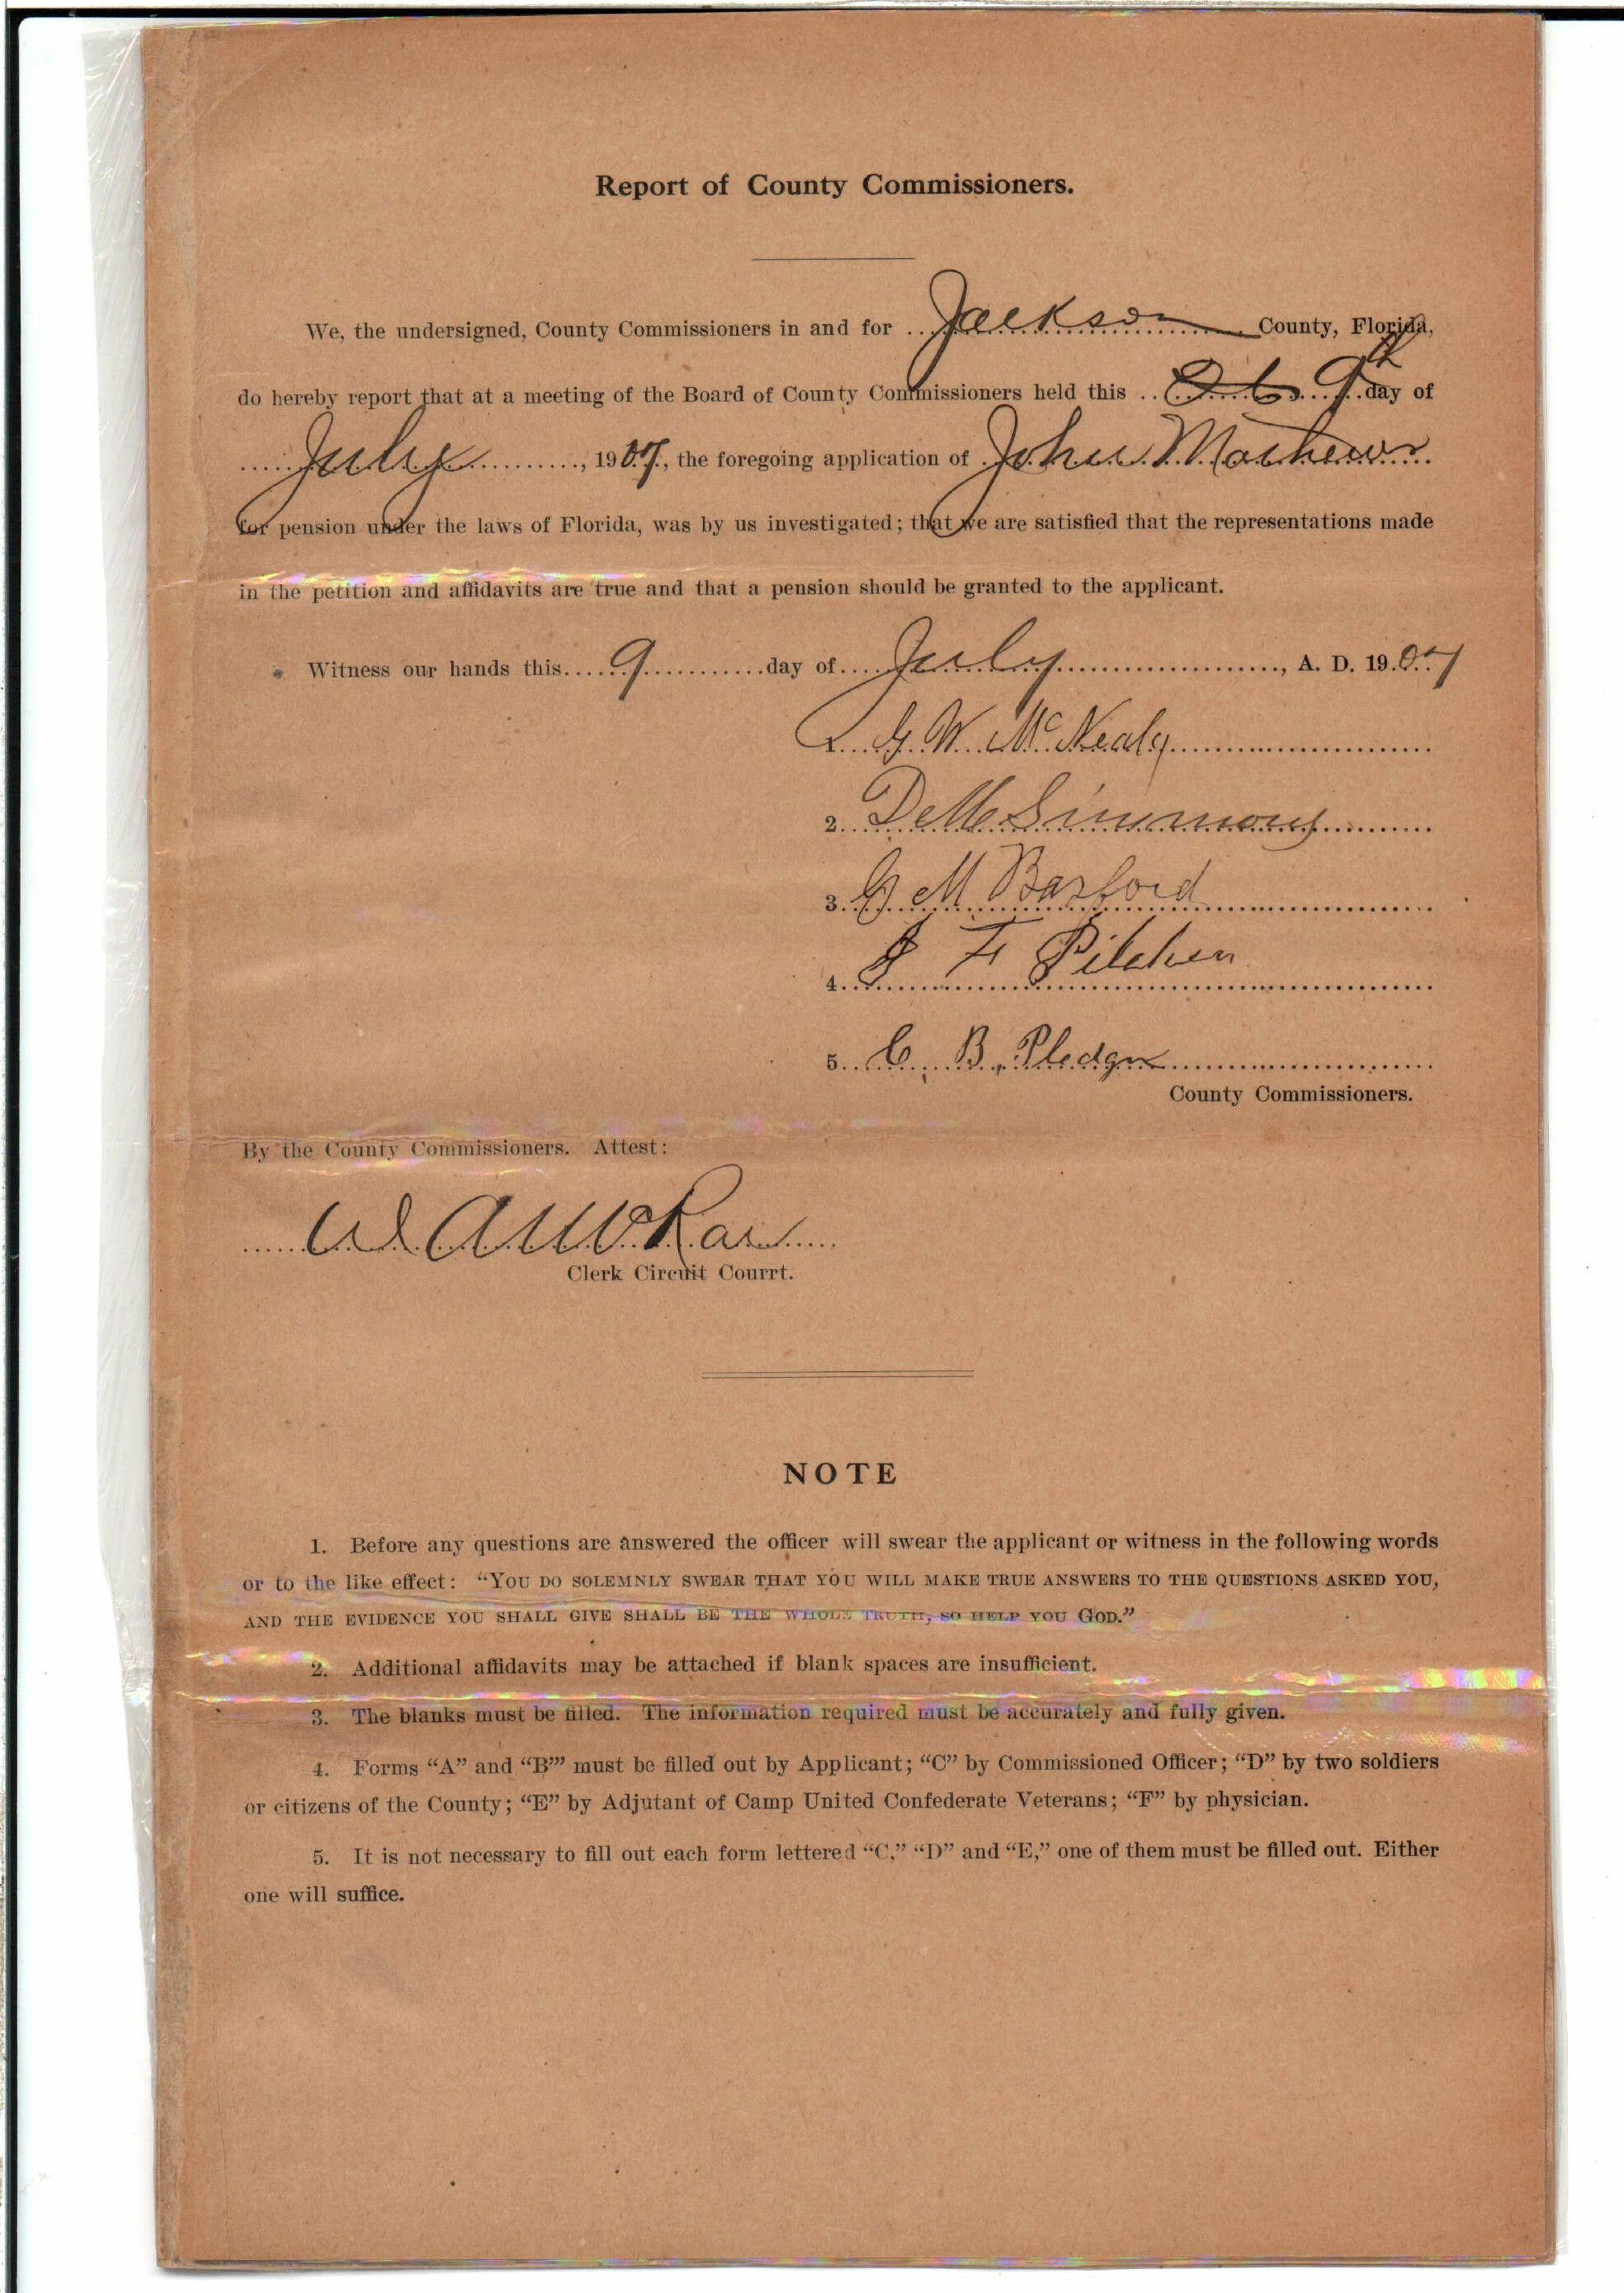 Report of County Commissioners.
We, the undersigned, County Commissioners in and for Jackson County, Florida,
do hereby report that at a meeting of the Board of County Commissioners held this 9th day of
July, 1907, the foregoing application of John Mathews
for pension under the laws of Florida, was by us investigated; that we are satisfied that the representations made
in the petition and affidavits are true and that a pension should be granted to the applicant.
Witness our hands this 9 day of July, A. D. 1907
1. G. W. McNealy
2. Simmons
3. G M Basford
4. J F Pilcher
5. C. B. Pledger
County Commissioners.
By the County Commissioners. Attest:
W A McRae
Clerk Circuit Courrt.
NOTE
1. Before any questions are answered the officer will swear the applicant or witness in the following words
or to the like effect: “YOU DO SOLEMNLY SWEAR THAT YOU WILL MAKE TRUE ANSWERS TO THE QUESTIONS ASKED YOU,
AND THE EVIDENCE YOU SHALL GIVE SHALL BE THE WHOLE TRUTH, SO HELP YOU GOD.”
2. Additional affidavits may be attached if blank spaces are insufficient.
3. The blanks must be filled. The information required must be accurately and fully given.
4. Forms “A” and “B”’ must be filled out by Applicant; “C” by Commissioned Officer; “D” by two soldiers
or citizens of the County; “E” by Adjutant of Camp United Confederate Veterans; “F” by physician.
5. It is not necessary to fill out each form lettered “C,” “D” and “E,” one of them must be filled out. Either
one will suffice.